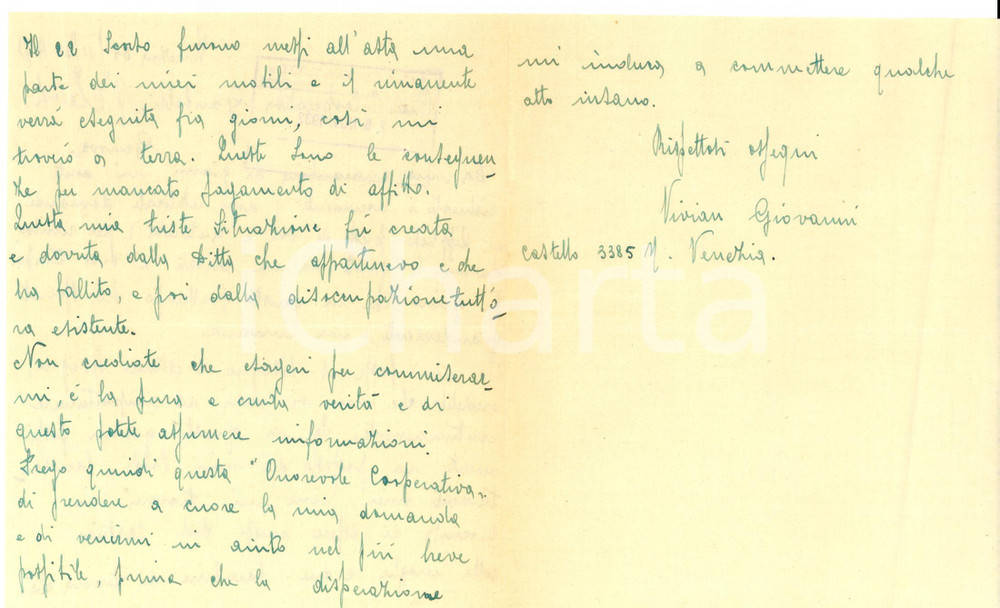 Il 22 Scorso furono messi all'asta una
parte dei miei mobili e il rimanente
verrà eseguita fra giorni, così mi
troverò a terra. Queste Sono le conseguen-
ze per mancato pagamento di affitto.
Questa mia triste Situazione fù creata
e dovuta dalla Ditta che appartenevo e che
ha fallito, e poi dalla disoccupazione tutt'o-
ra esistente.
Non crediate che esageri per commiserar-
mi, é la pura e cruda verità e di
questo potete assumere informazioni.
Prego quindi questa "Onorevole Cooperativa"
di prendere a cuore la mia domanda
e di venirmi in aiuto nel più breve
possibile, prima che la disperazione
mi induca a commettere qualche
atto insano.
Rispettosi ossequi
Vivian Giovanni
Castello 3385 N. Venezia.
iCharta